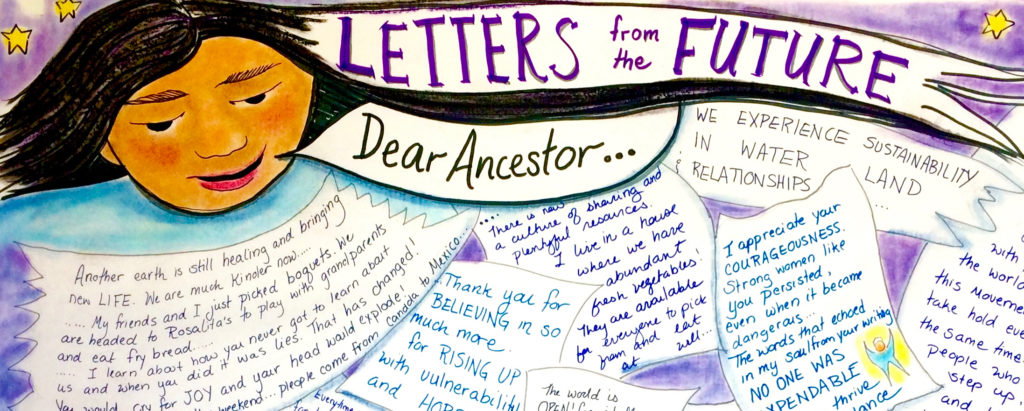 LETTERS from the FUTURE
Dear Ancestor...
WE EXPERIENCE SUSTAINABILITY
IN WATER
& LAND
RELATIONSHIPS ...
Another earth is still healing and bringing
new LIFE. We are much kinder now....
..... My friends and I just picked boquets. We
are headed to Rosalita's to play with grandparents
and eat fry bread.....
..... I learn about how you never got to learn about
us and when you did it was lies. That has changed!
You would cry for JOY and your head would explode!
weekend... people come from Canada to Mexico...
....
There is now
a culture of sharing and
plentyful resources.
I live in a house
where we have
abundant
fresh vegetables!
They are available
for everyone to pick
from and eat
at well...
...Thank you for
BELIEVING in so
much more.
for RISING UP
with vulnerability
and
Everytime
The world is
OPEN!
I appreciate your
COURAGEOUSNESS.
Strong women like
you Persisted,
even when it became
dangerous...
The words that echoed
in my soul from your writing
NO ONE WAS
EXPENDABLE
thrive
with
the world
this movement
take hold
the same time
people who
step up,
and